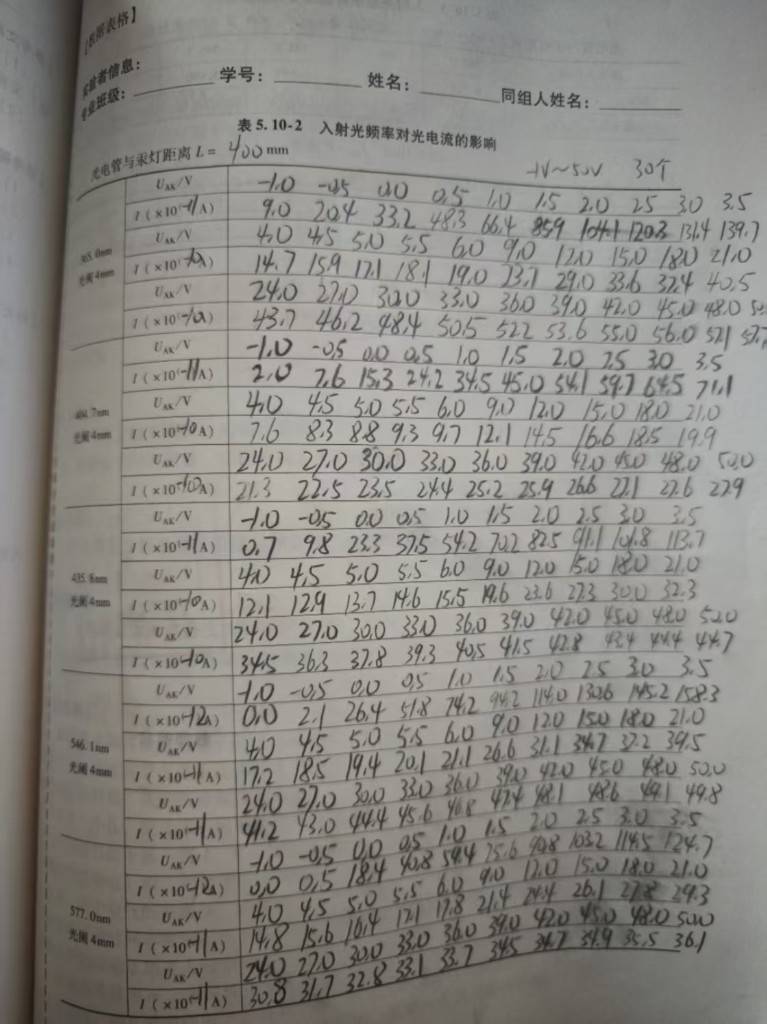 【数据表格】
实验者信息:
专业班级: 学号: 姓名: 同组人姓名:
表 5.10-2 入射光频率对光电流的影响
光电管与汞灯距离 L = 400 mm
-1V~50V 30个
U_AK/V -1.0 -0.5 0.0 0.5 1.0 1.5 2.0 2.5 3.0 3.5
I(×10⁻¹¹A) 9.0 20.4 33.2 48.3 66.4 85.9 104.1 120.3 131.4 139.7
365.0nm 光阑4mm
U_AK/V 4.0 4.5 5.0 5.5 6.0 9.0 12.0 15.0 18.0 21.0
I(×10⁻¹⁰A) 14.7 15.9 17.1 18.1 19.0 23.7 29.0 33.6 37.4 40.5
U_AK/V 24.0 27.0 30.0 33.0 36.0 39.0 42.0 45.0 48.0
I(×10⁻¹⁰A) 43.7 46.2 48.4 50.5 52.2 53.6 55.0 56.0 57.1
U_AK/V -1.0 -0.5 0.0 0.5 1.0 1.5 2.0 2.5 3.0 3.5
I(×10⁻¹¹A) 2.0 7.6 15.3 24.2 34.5 45.0 54.1 59.7 64.5 71.1
404.7nm 光阑4mm
U_AK/V 4.0 4.5 5.0 5.5 6.0 9.0 12.0 15.0 18.0 21.0
I(×10⁻¹⁰A) 7.6 8.3 8.8 9.3 9.7 12.1 14.5 16.6 18.5 19.9
U_AK/V 24.0 27.0 30.0 33.0 36.0 39.0 42.0 45.0 48.0 50.0
I(×10⁻¹⁰A) 21.3 22.5 23.5 24.4 25.2 25.9 26.6 27.1 27.6 27.9
U_AK/V -1.0 -0.5 0.0 0.5 1.0 1.5 2.0 2.5 3.0 3.5
I(×10⁻¹¹A) 0.7 9.8 23.3 37.5 54.2 70.2 82.5 91.1 101.8 113.7
435.8nm 光阑4mm
U_AK/V 4.0 4.5 5.0 5.5 6.0 9.0 12.0 15.0 18.0 21.0
I(×10⁻¹⁰A) 12.1 12.9 13.7 14.6 15.5 19.6 23.6 27.3 30.0 32.3
U_AK/V 24.0 27.0 30.0 33.0 36.0 39.0 42.0 45.0 48.0 50.0
I(×10⁻¹⁰A) 34.5 36.3 37.8 39.3 40.5 41.5 42.8 43.4 44.4 44.7
U_AK/V -1.0 -0.5 0.0 0.5 1.0 1.5 2.0 2.5 3.0 3.5
I(×10⁻¹²A) 0.0 2.1 26.4 51.8 74.2 94.2 114.0 130.6 145.2 158.3
546.1nm 光阑4mm
U_AK/V 4.0 4.5 5.0 5.5 6.0 9.0 12.0 15.0 18.0 21.0
I(×10⁻¹¹A) 17.2 18.5 19.4 20.1 21.1 26.6 31.1 34.7 37.2 39.5
U_AK/V 24.0 27.0 30.0 33.0 36.0 39.0 42.0 45.0 48.0 50.0
I(×10⁻¹¹A) 41.2 43.0 44.4 45.6 46.8 47.4 48.1 48.6 49.1 49.8
U_AK/V -1.0 -0.5 0.0 0.5 1.0 1.5 2.0 2.5 3.0 3.5
I(×10⁻¹²A) 0.0 0.5 18.4 40.8 59.4 75.6 90.8 103.2 114.5 124.7
577.0nm 光阑4mm
U_AK/V 4.0 4.5 5.0 5.5 6.0 9.0 12.0 15.0 18.0 21.0
I(×10⁻¹¹A) 14.8 15.6 16.4 17.1 17.8 21.4 24.4 26.1 27.8 29.3
U_AK/V 24.0 27.0 30.0 33.0 36.0 39.0 42.0 45.0 48.0 50.0
I(×10⁻¹¹A) 30.8 31.7 32.8 33.1 33.7 34.5 34.7 34.9 35.5 36.1